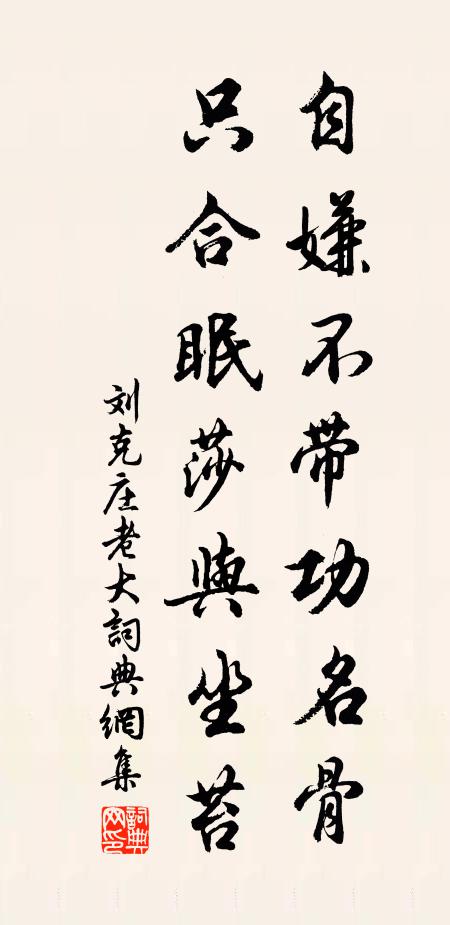 自嫌不带功名骨
只合眠莎與坐苔
刘克庄老大詞典網集
詞典
网印